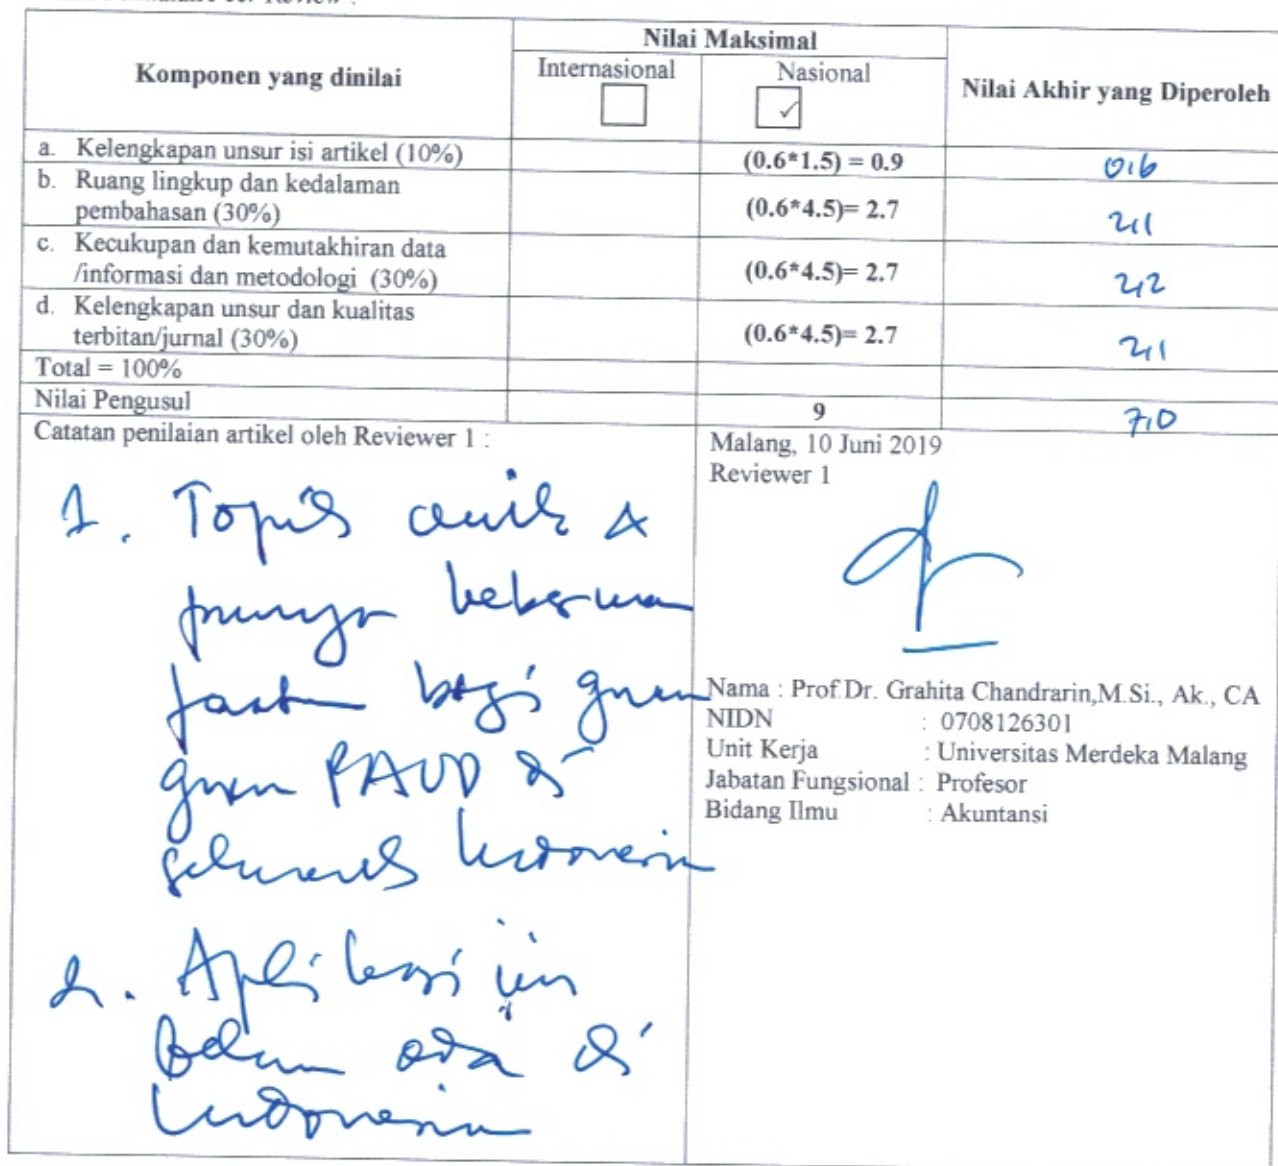 Review :
Komponen yang dinilai
Nilai Maksimal
Internasional
Nasional
✓
Nilai Akhir yang Diperoleh
a. Kelengkapan unsur isi artikel (10%)
(0.6*1.5) = 0.9
0,6
b. Ruang lingkup dan kedalaman
pembahasan (30%)
(0.6*4.5)= 2.7
2,1
c. Kecukupan dan kemutakhiran data
/informasi dan metodologi (30%)
(0.6*4.5)= 2.7
2,2
d. Kelengkapan unsur dan kualitas
terbitan/jurnal (30%)
(0.6*4.5)= 2.7
2,1
Total = 100%
Nilai Pengusul
9
7,0
Catatan penilaian artikel oleh Reviewer 1 :
1. Topik unik &
punya
bagi guru
guru PAUD di
seluruh Indonesia
2. Aplikasi ini
belum ada di
Indonesia
Malang, 10 Juni 2019
Reviewer 1
Nama : Prof.Dr. Grahita Chandrarin,M.Si., Ak., CA
NIDN : 0708126301
Unit Kerja : Universitas Merdeka Malang
Jabatan Fungsional : Profesor
Bidang Ilmu : Akuntansi